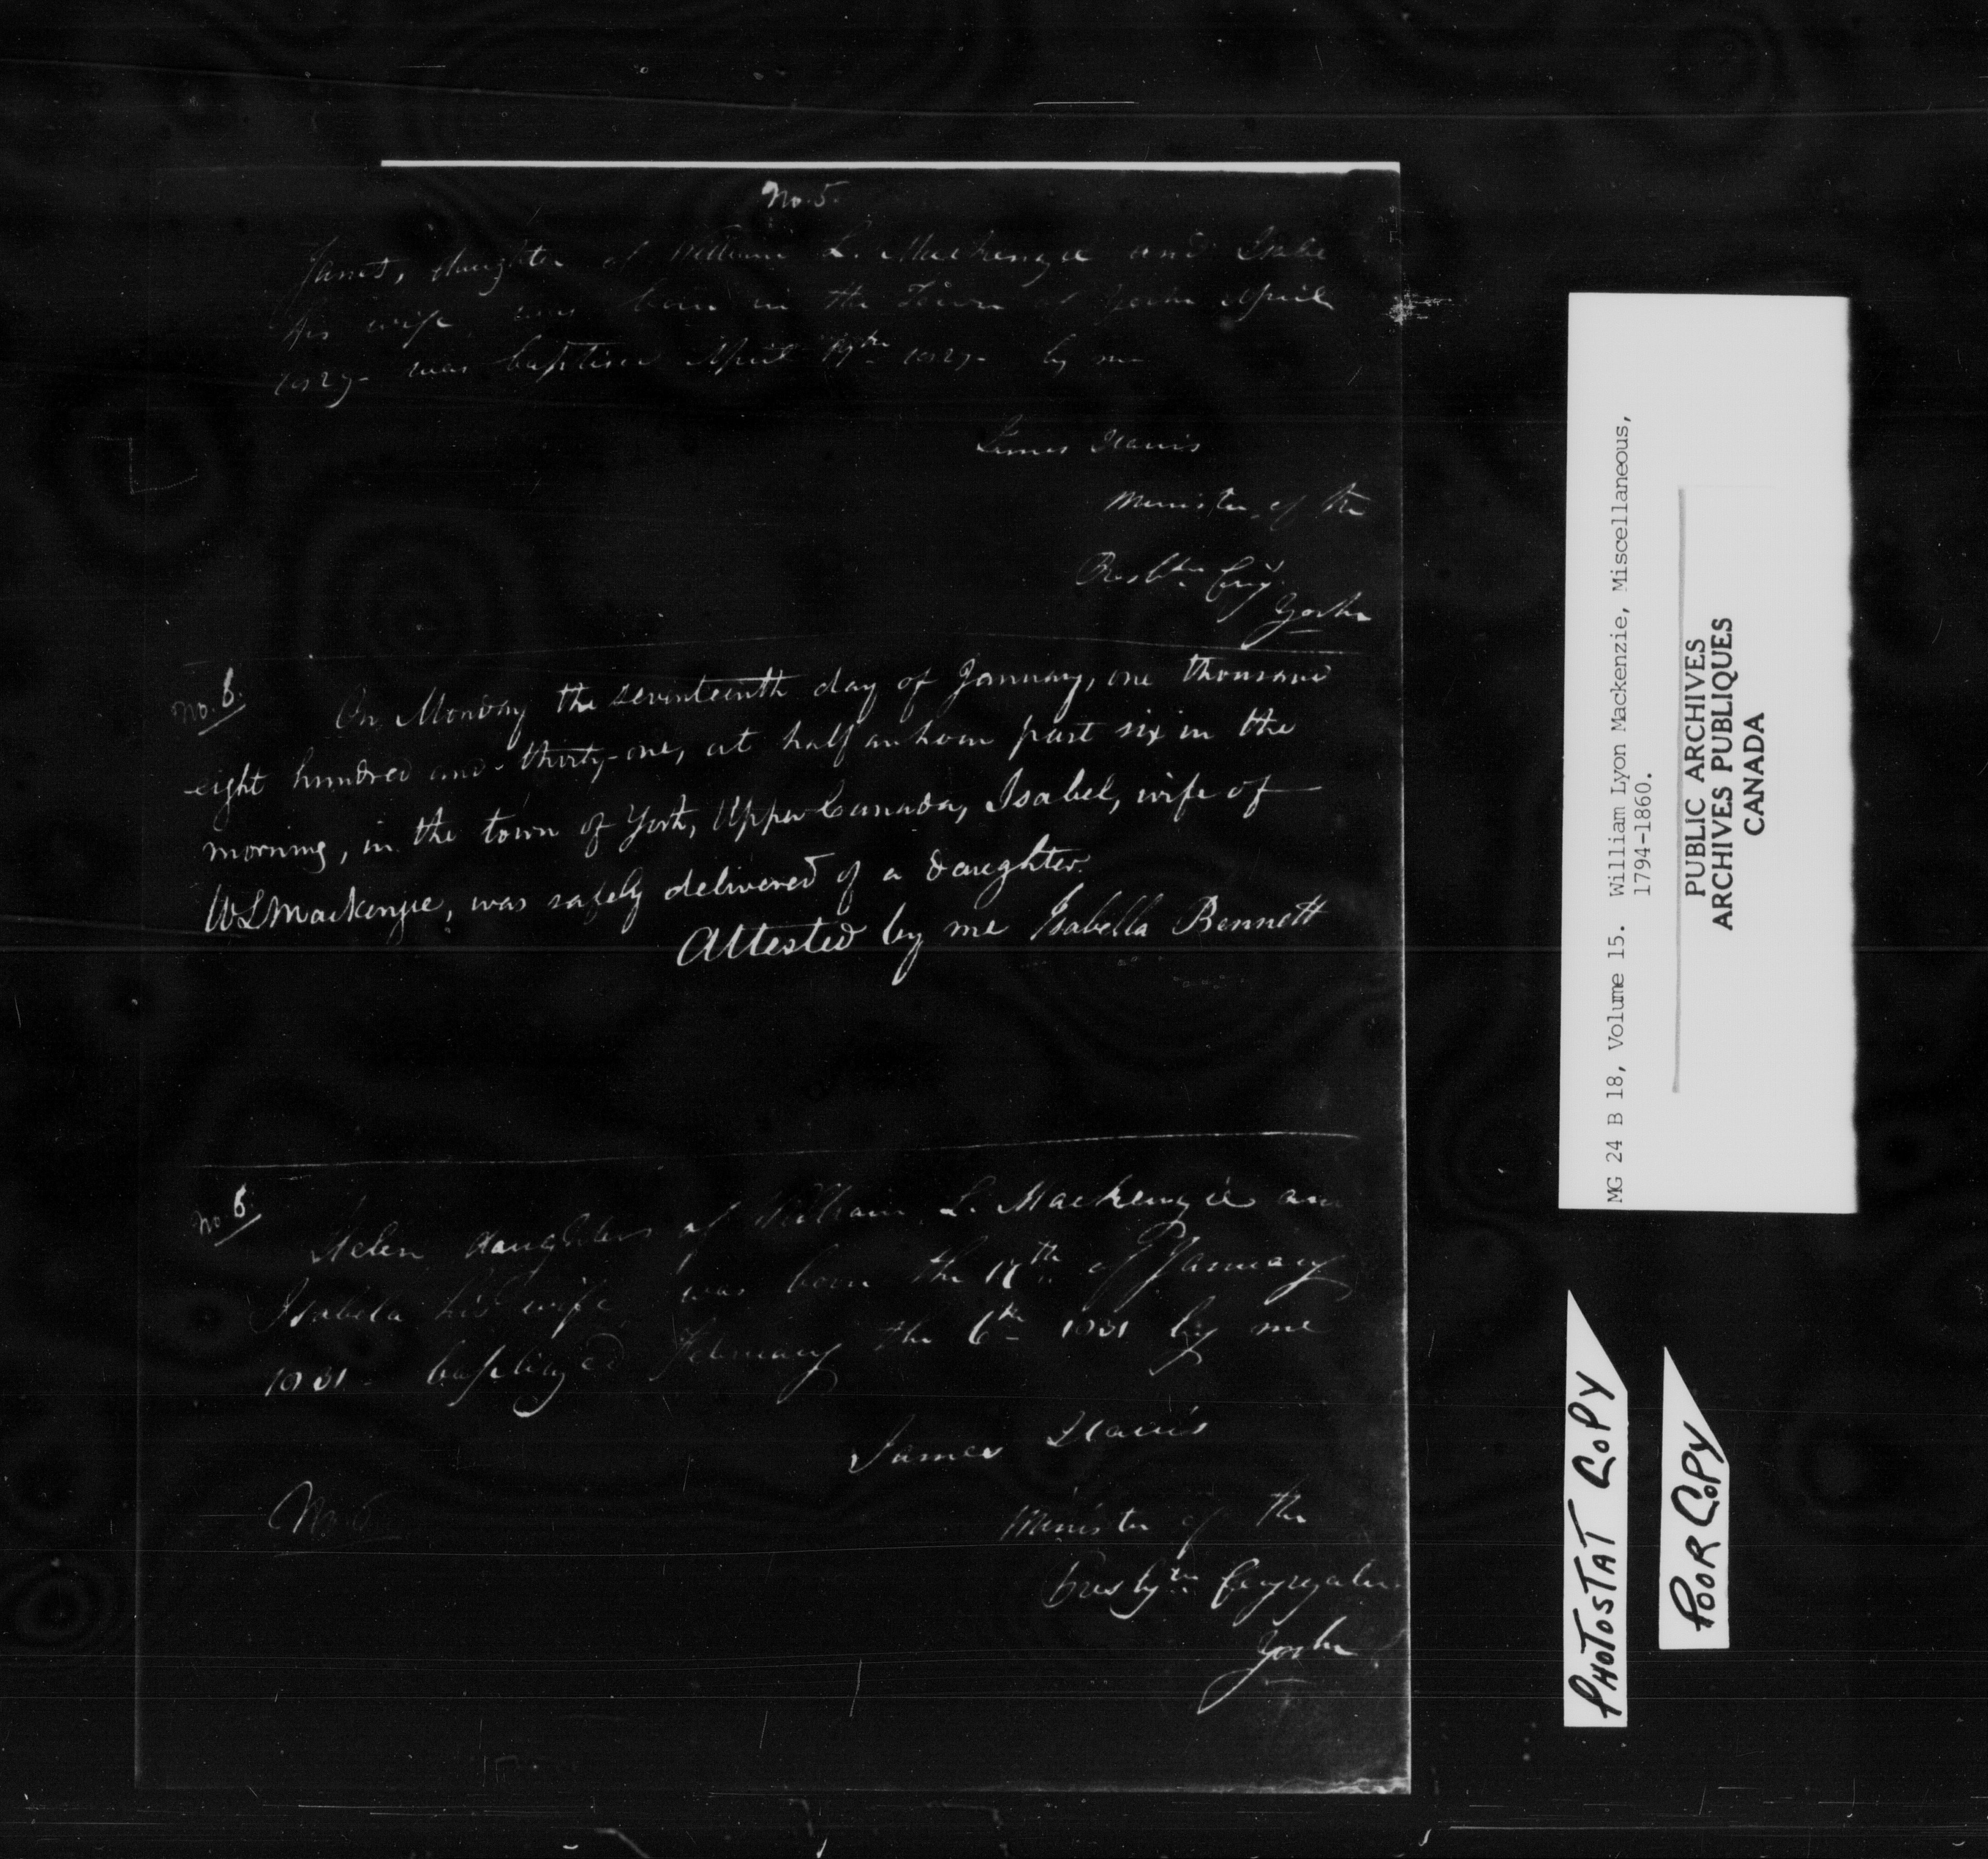 No. 5.
Janet, daughter of William L. Mackenzie and Isabe
his wife was born in the Town of York April
1829 was baptised April 19th 1829 by me
James Harris
Minister of the
Presbtn Cong
York
No. 6.
On Monday the seventeenth day of January, one thousand
eight hundred and thirty-one, at half an hour past six in the
morning, in the town of York, Upper Canada, Isabel, wife of
W L Mackenzie, was safely delivered of a daughter.
Attested by me Isabella Bennett
No. 6.
Helen daughter of William L. Mackenzie an
Isabella his wife was born the 17th of January
1831 - baptized February the 6th 1831 by me
James Harris
No. 6
Minister of the
Presbytn Congregatn
York
MG 24 B 18, Volume 15. William Lyon Mackenzie, Miscellaneous,
1794-1860.
PUBLIC ARCHIVES
ARCHIVES PUBLIQUES
CANADA
PHOTOSTAT COPY
POOR COPY